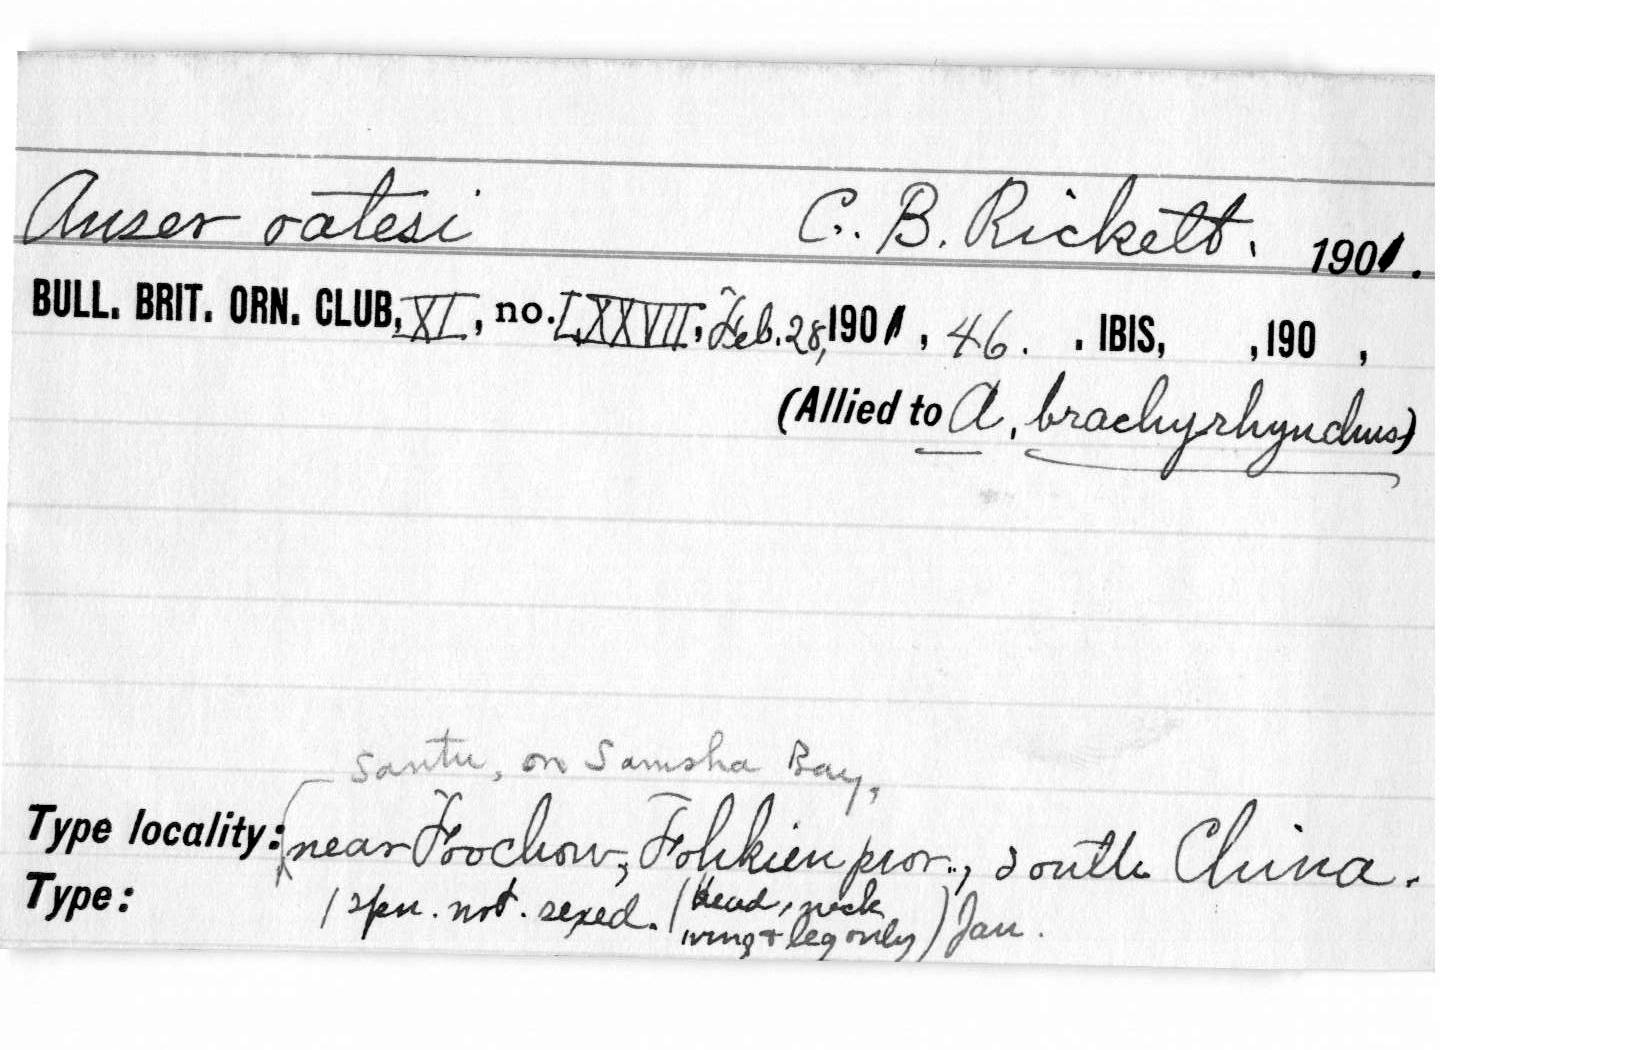 Anser oatesi C. B. Rickett. 1901.
BULL. BRIT. ORN. CLUB, XI, no. LXXVII, Feb. 28, 1901, 46. . IBIS, , 190 ,
(Allied to A. brachyrhynchus)
Santu, on Samsha Bay,
Type locality: near Foochow, Fohkien prov., south China.
Type: 1 spn. not. sexed. (head, neck
wing & leg only) Jan.